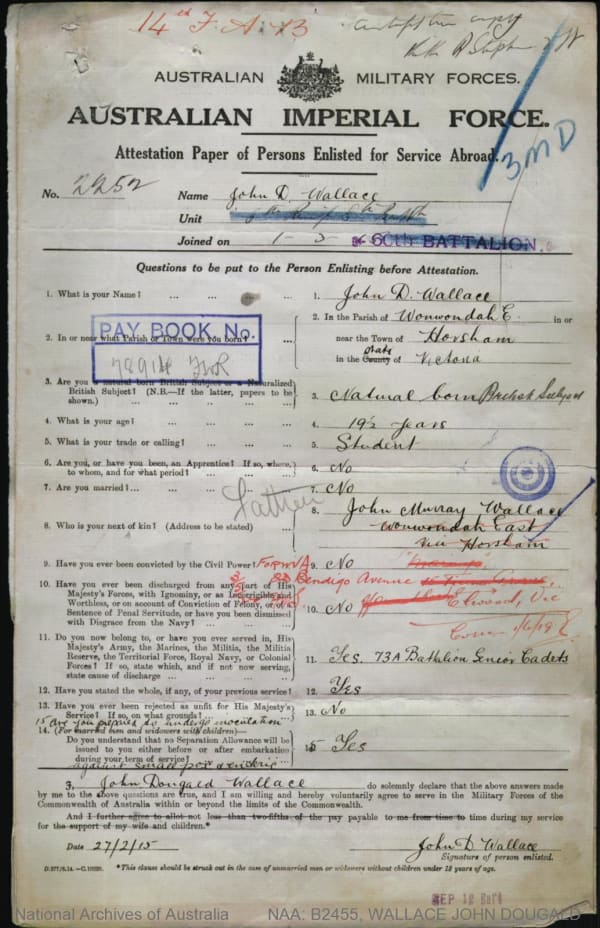 14th F. A. B
copy
AUSTRALIAN MILITARY FORCES.
AUSTRALIAN IMPERIAL FORCE.
Attestation Paper of Persons Enlisted for Service Abroad.
3MD
No. 2252
Name John D. Wallace
Unit
Joined on 1-5- 60th BATTALION.
Questions to be put to the Person Enlisting before Attestation.
1. What is your Name? ... ... ... ...
1. John D. Wallace
2. In or near what Parish or Town were you born? ...
2. In the Parish of Wonwondah E. in or
near the Town of Horsham
in the County of State Victoria
PAY BOOK. No.
78914
3. Are you a natural born British Subject or a Naturalized
British Subject? (N.B.—If the latter, papers to be
shown.) ... ... ... ...
3. Natural born British Subject
4. What is your age? ... ... ... ...
4. 19½ years
5. What is your trade or calling? ... ... ...
5. Student
6. Are you, or have you been, an Apprentice? If so, where,
to whom, and for what period? ... ... ...
6. No
7. Are you married? ... ... ... ...
7. No
Father
8. Who is your next of kin? (Address to be stated) ...
8. John Murray Wallace
Wonwondah East
via Horsham
9. Have you ever been convicted by the Civil Power?
9. No
Form
Bendigo Avenue
Elwood, Vic
10. Have you ever been discharged from any part of His
Majesty's Forces, with Ignominy, or as Incorrigible and
Worthless, or on account of Conviction of Felony, or of a
Sentence of Penal Servitude, or have you been dismissed
with Disgrace from the Navy? ... ...
10. No
11. Do you now belong to, or have you ever served in, His
Majesty's Army, the Marines, the Militia, the Militia
Reserve, the Territorial Force, Royal Navy, or Colonial
Forces? If so, state which, and if not now serving,
state cause of discharge ... ... ...
11. Yes. 73A Battalion Senior Cadets
12. Have you stated the whole, if any, of your previous service?
12. Yes
13. Have you ever been rejected as unfit for His Majesty's
Service? If so, on what grounds? ... ...
13. No
15 Are you prepared to undergo inoculation
14. (For married men and widowers with children)—
Do you understand that no Separation Allowance will be
issued to you either before or after embarkation
during your term of service?
against small pox & enteric
15 Yes
I, John Dougald Wallace do solemnly declare that the above answers made
by me to the above questions are true, and I am willing and hereby voluntarily agree to serve in the Military Forces of the
Commonwealth of Australia within or beyond the limits of the Commonwealth.
And I further agree to allot not less than two-fifths of the pay payable to me from time to time during my service
for the support of my wife and children.*
Date 27/2/15
John D Wallace
Signature of person enlisted.
*This clause should be struck out in the case of unmarried men or widowers without children under 18 years of age.
SEP 12
National Archives of Australia
NAA: B2455, WALLACE JOHN DOUGALD